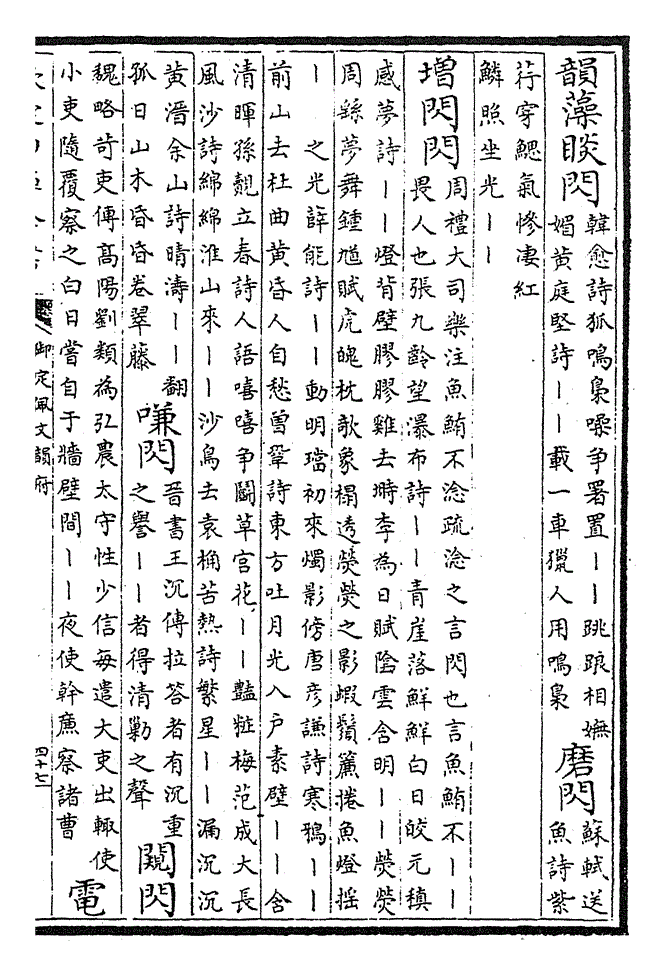 韻藻睒閃
韓愈詩狐鳴梟噪争署置丨丨跳踉相嫵
媚黄庭堅詩丨丨載一車獵人用鳴梟
磨閃
蘇軾送
魚詩紫
荇穿鰓氣慘凄紅
鱗照坐光丨丨
增閃閃
周禮大司樂注魚鮪不淰疏淰之言閃也言魚鮪不丨丨
畏人也張九齡望瀑布詩丨丨青崖落鮮鮮白日皎元稹
感夢詩丨丨燈背壁膠膠雞去塒李為日賦陰雲含明丨丨熒熒
周繇夢舞鍾馗賦虎魄枕欹象榻透熒熒之影蝦鬚簾捲魚燈摇
丨丨之光薛能詩丨丨動明璫初來燭影傍唐彦謙詩寒鴉丨丨
前山去杜曲黄昏人自愁曾鞏詩東方吐月光入户素壁丨丨含
清暉孫覿立春詩人語嘻嘻争鬬草宫花丨丨豔粧梅范成大長
風沙詩綿綿淮山來丨丨沙鳥去袁桷苦熱詩繁星丨丨漏沉沉
黄溍余山詩晴濤丨丨翻
孤日山木昏昏卷翠藤
嗛閃
晉書王沉傳拉答者有沉重
之譽丨丨者得清勦之聲
闚閃
魏略苛吏傳高陽劉類為弘農太守性少信每遣大吏出輒使
小吏隨覆察之白日嘗自于牆壁間丨丨夜使幹廉察諸曹
電
御定佩文韻府
四十七